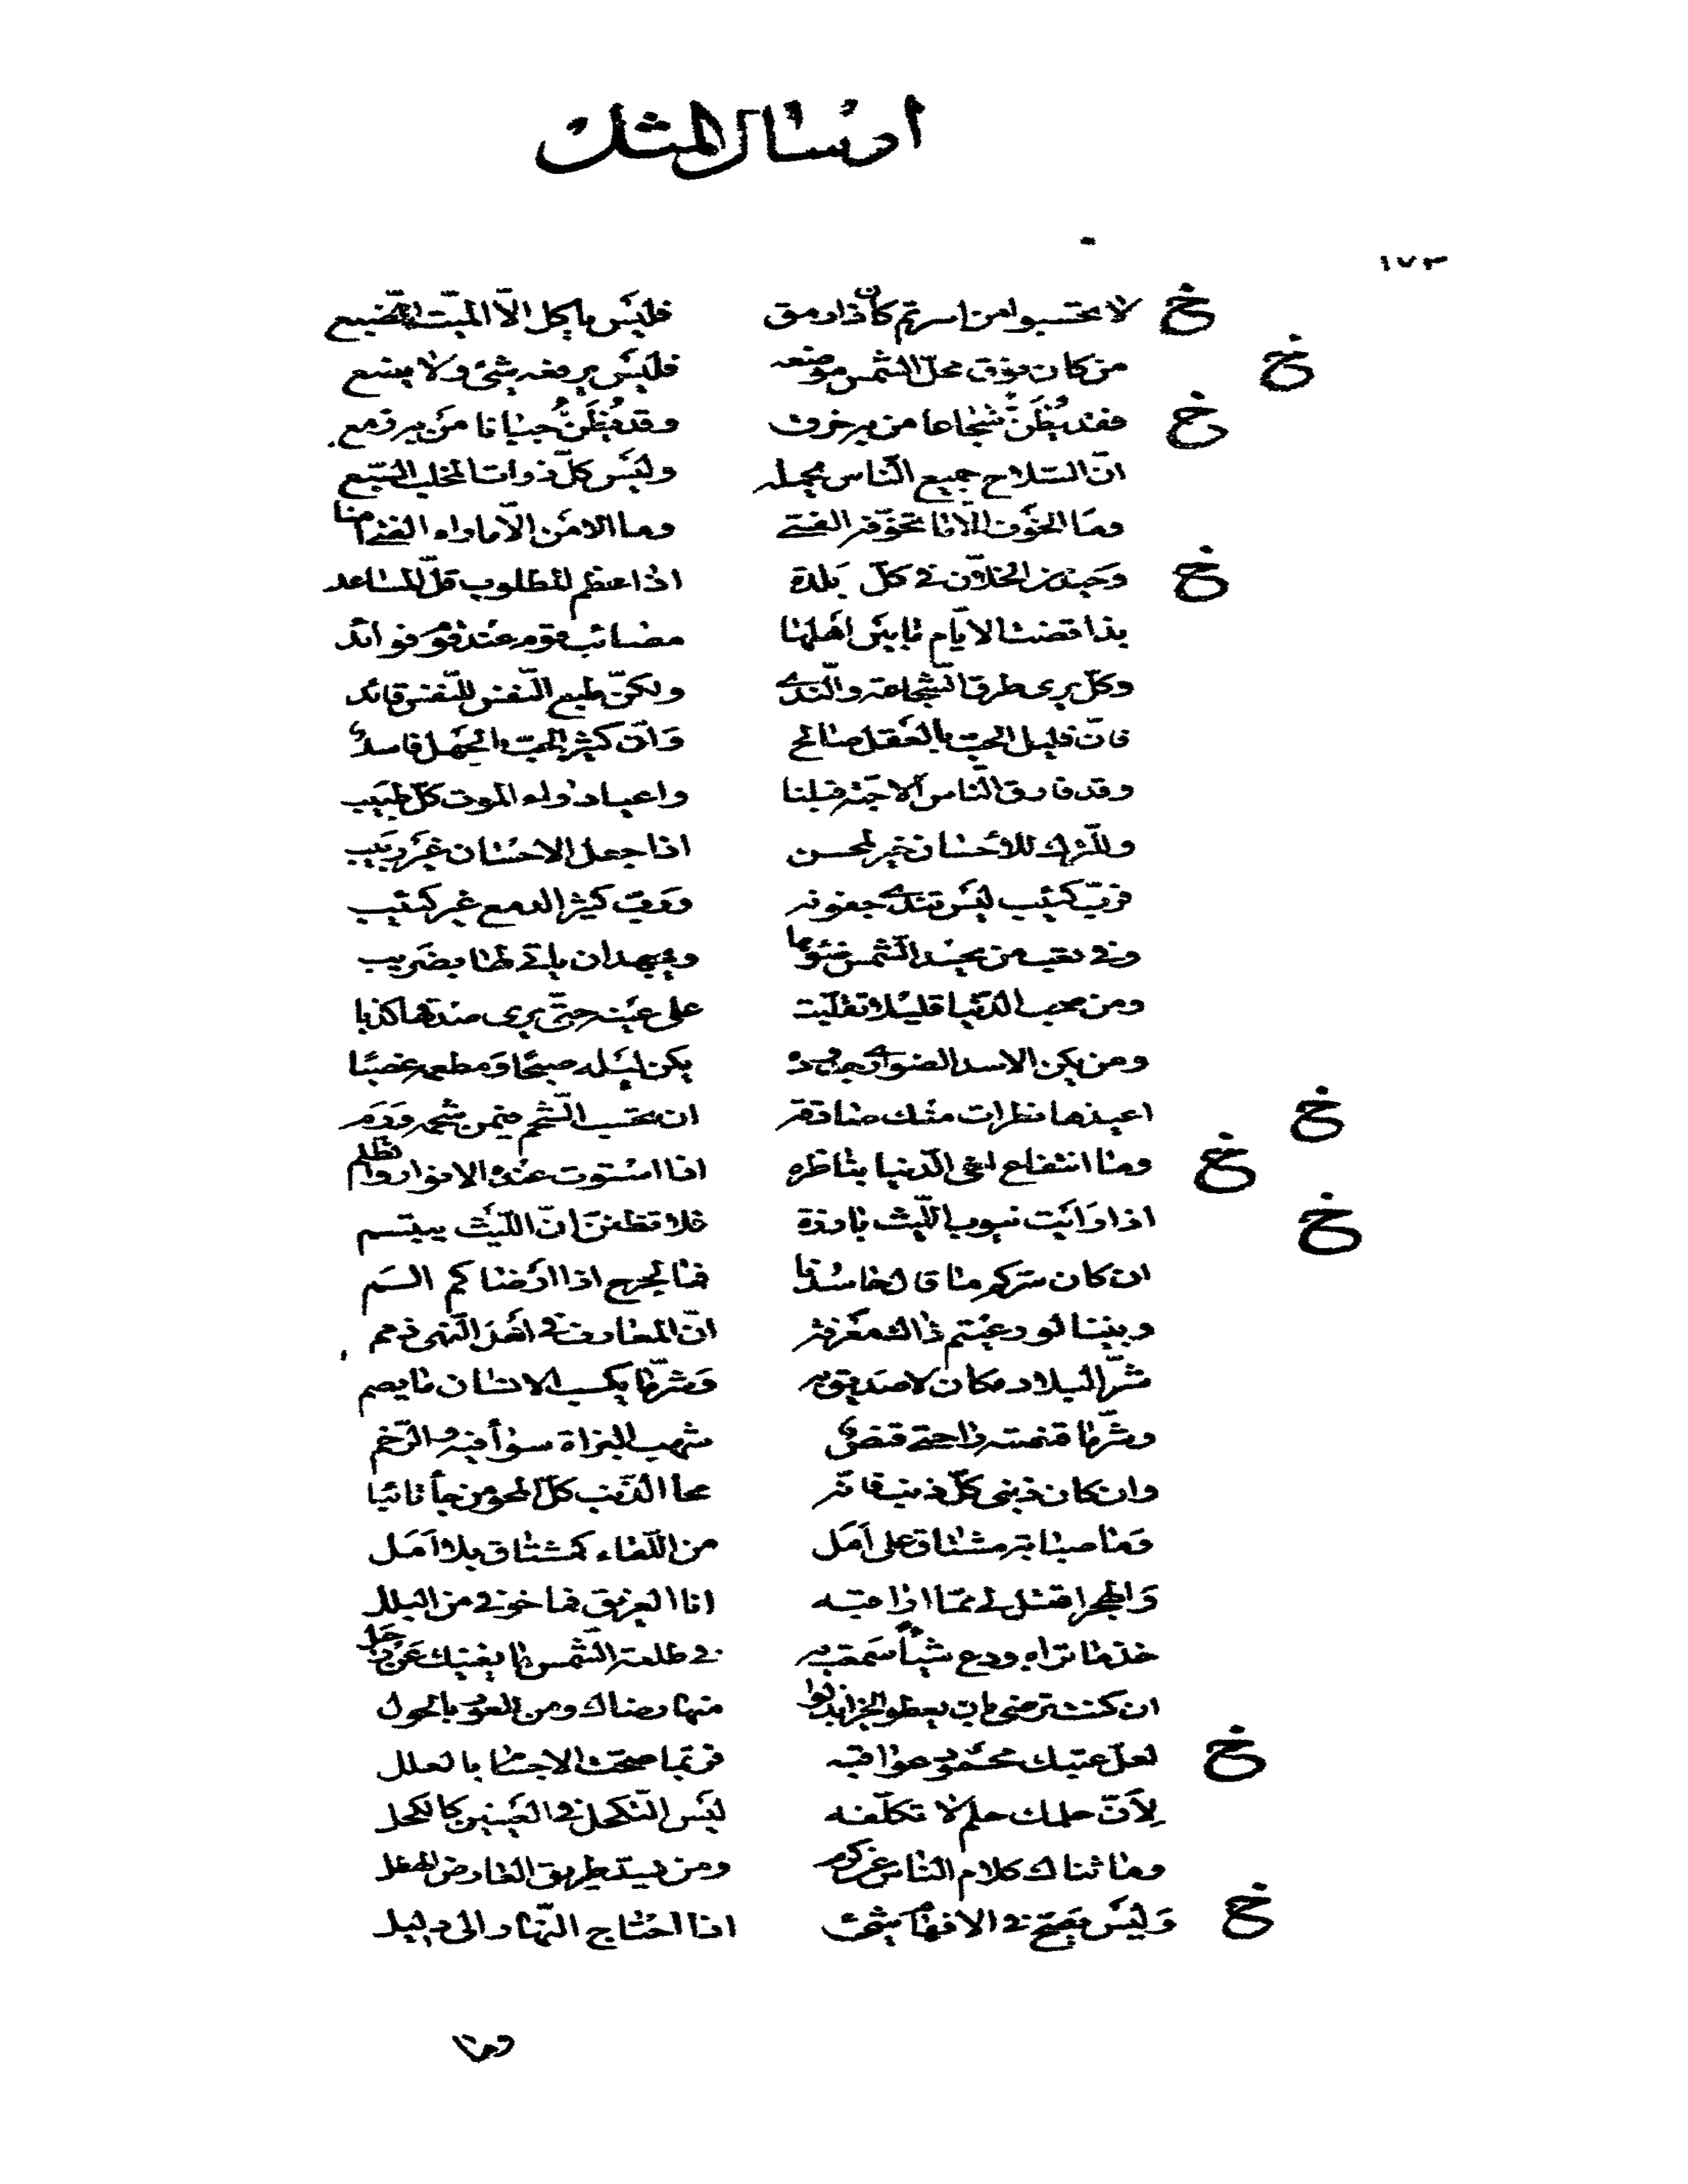 ارسال المثل
١٧٣
خ لا تحسبوا من اسرتم كان ذا رمق فليس ياكل الّا الميّت الضّبع
خ من كان فوق محلّ الشّمس موضعه فليس يرفعه شئ ولا يضع
خ فقد يُظَنّ شجاعا من به خرق وقد يُظَنّ جبانا من به زمع
انّ السّلاح جميع النّاس يحمله وليس كلّ ذوات المخلب السّبع
وما الخوف الّا ما تخوّفه الفتى وما الامن الّا ما راه الفتى امنا
خ وحيد من الخلّان في كلّ بلدة اذا عظم المطلوب قلّ المساعد
بذا قضت الايّام ما بين اهلها مصائب قوم عند قوم فوائد
وكلّ يرى طرق الشّجاعة والنّدى ولكنّ طبع النّفس للنّفس قائد
فانّ قليل الحبّ بالعقل صالح وانّ كثير الحبّ بالجهل فاسد
وقد فارق النّاس الاحبّة قبلنا واعيا دواء الموت كلّ طبيب
وللتّرك للاحسان خير لمحسن اذا جعل الاحسان غير ربيب
فربّ كئيب ليس تندى جفونه وربّ كثير الدمع غير كئيب
وفي تعب من يحسد الشّمس ضوئها ويجهد ان ياتي لها بضريب
ومن صحب الدّنيا قليلا تقلّبت على عينه حتّى يرى صدقها كذبا
ومن يكن الاسد الضوارى جدوده يكن ليله صبحا ومطعمه غصبا
خ اعيذها نظرات منك صادقة ان تحسب الشّحم فيمن شحمه ورم
خ وما انتفاع اخى الدّنيا بناظره اذا استوت عنده الانوار والظلم
خ اذا رايت نيوب اللّيث بارزة فلا تظنّنّ انّ اللّيث يبتسم
ان كان سركم ما قال حاسدنا فما لجرح اذا ارضاكم الم
وبيننا لو رعيتم ذاك معرفة انّ المعارف في اهل النّهى ذمم
شرّ البلاد مكان لا صديق به وشرّ ما يكسب الانسان ما يصم
وشرّ ما قنصته راحتى قنص شهب البزاة سواء فيه والرّخم
وان كان ذنبى كلّ ذنب فانّه محا الذّنب كلّ المحو من جاء تائبا
وما صبابة مشتاق على امل من اللّقاء كمشتاق بلا امل
والهجر اقتل لى ممّا اراقبه انا الغريق فما خوفى من البلل
خذ ما تراه ودع شيئا سمعت به في طلعة الشّمس ما يغنيك عن زحل
ان كنت ترضى بان يعطوا الجزا بذلوا منها رضاك ومن للعور بالحول
خ لعلّ عتبك محمود عواقبه فربّما صحّت الاجسام بالعلل
لانّ حلمك حلم لا تكلّفه ليس التّكحّل في العينين كالكحل
وما ثناك كلام النّاس عن كرم ومن يسدّ طريق العارض الهطل
خ وليس يصحّ في الافهام شئ اذا احتاج النّهار الى دليل
وما